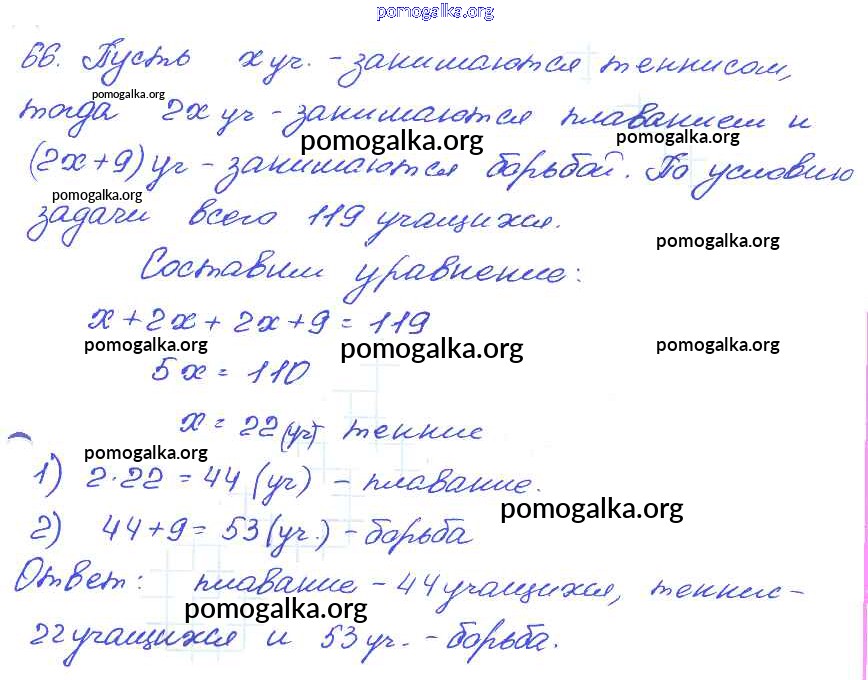 pomogalka.org
66. Пусть х уч. - занимаются теннисом,
pomogalka.org
тогда 2х уч - занимаются плаванием и
pomogalka.org pomogalka.org
(2х+9) уч - занимаются борьбой. По условию
pomogalka.org
задачи всего 119 учащихся.
pomogalka.org
Составим уравнение:
х + 2х + 2х + 9 = 119
pomogalka.org pomogalka.org pomogalka.org
5х = 110
х = 22 (уч) теннис
pomogalka.org
1) 2·22 = 44 (уч) - плавание.
pomogalka.org
2) 44+9 = 53 (уч.) - борьба
Ответ: плавание - 44 учащихся, теннис -
pomogalka.org
22 учащихся и 53 уч. - борьба.